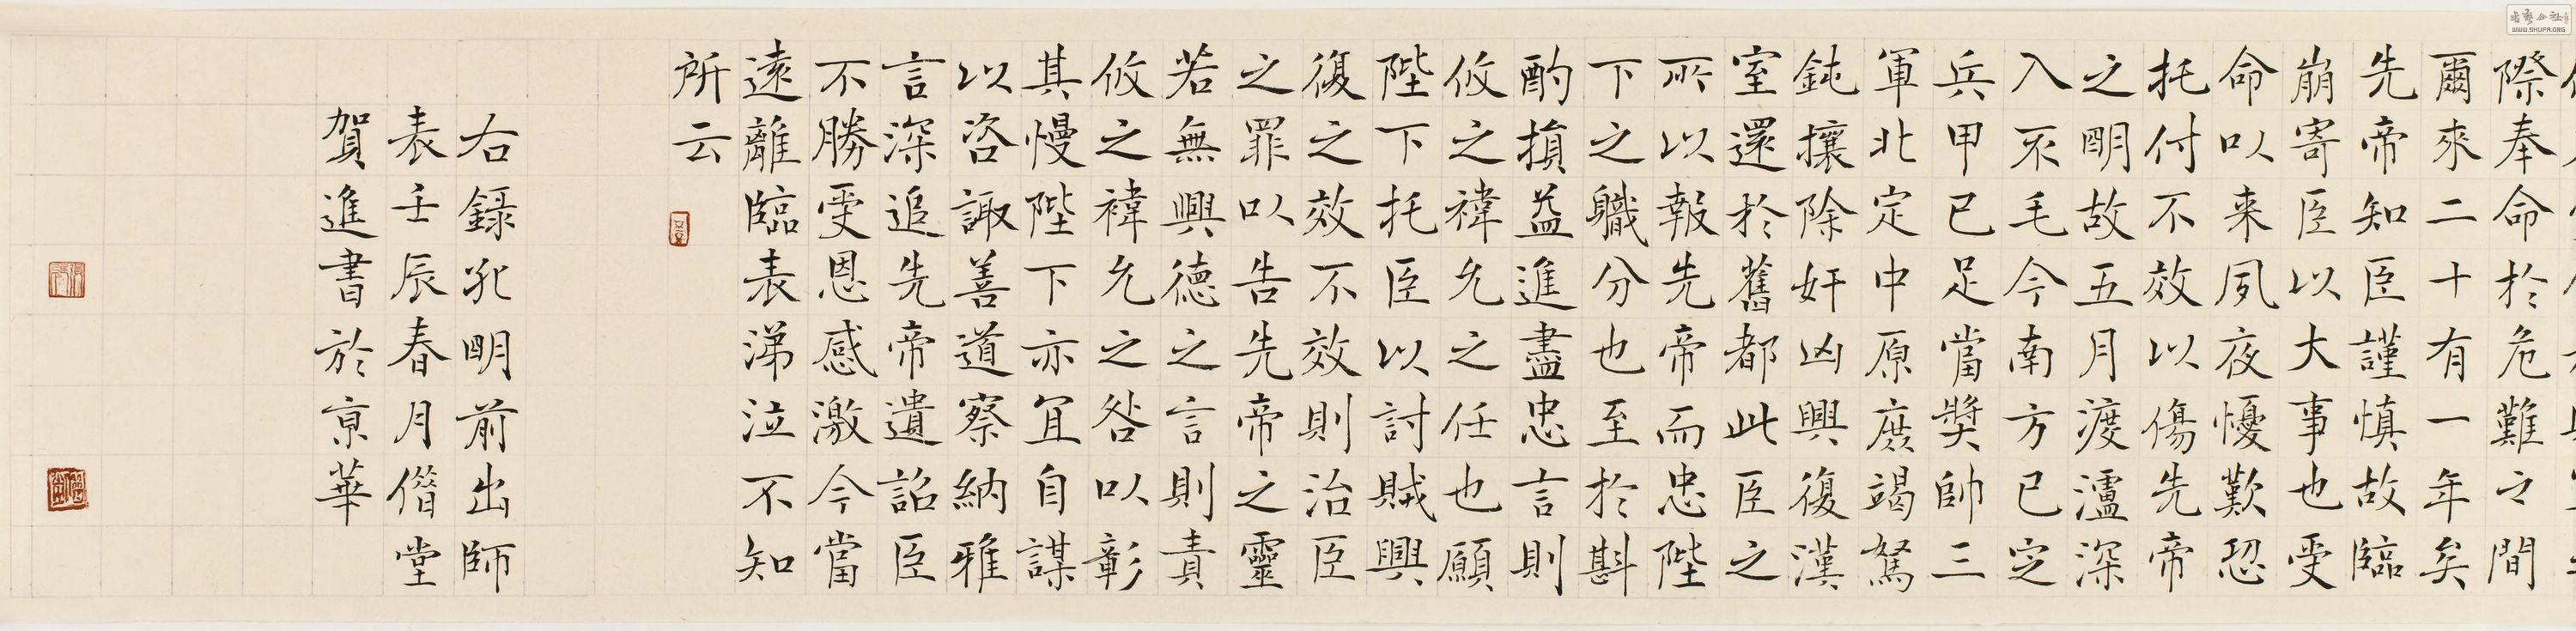 際奉命於危難之間
爾來二十有一年矣
先帝知臣謹慎故臨
崩寄臣以大事也受
命以来夙夜憂歎恐
托付不效以傷先帝
之明故五月渡瀘深
入不毛今南方已定
兵甲已足當獎帥三
軍北定中原庶竭駑
鈍攘除奸凶興復漢
室還於舊都此臣之
所以報先帝而忠陛
下之職分也至於斟
酌損益進盡忠言則
攸之禕允之任也願
陛下托臣以討賊興
復之效不效則治臣
之罪以告先帝之靈
若無興德之言則責
攸之禕允之咎以彰
其慢陛下亦宜自謀
以咨諏善道察納雅
言深追先帝遺詔臣
不勝受恩感激今當
遠離臨表涕泣不知
所云
右錄孔明前出師
表壬辰春月僭堂
賀進書於京華
WWW.SHUFA.ORG